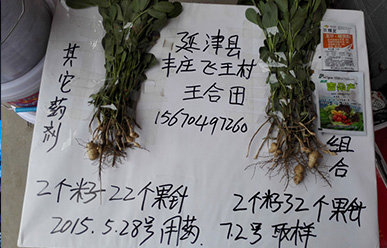 延津县
丰庄飞王村
王合田
15670497260
其它药剂
组合
2个籽-22个果针
2个籽32个果针
2015.5.28号用药 7.2号取样